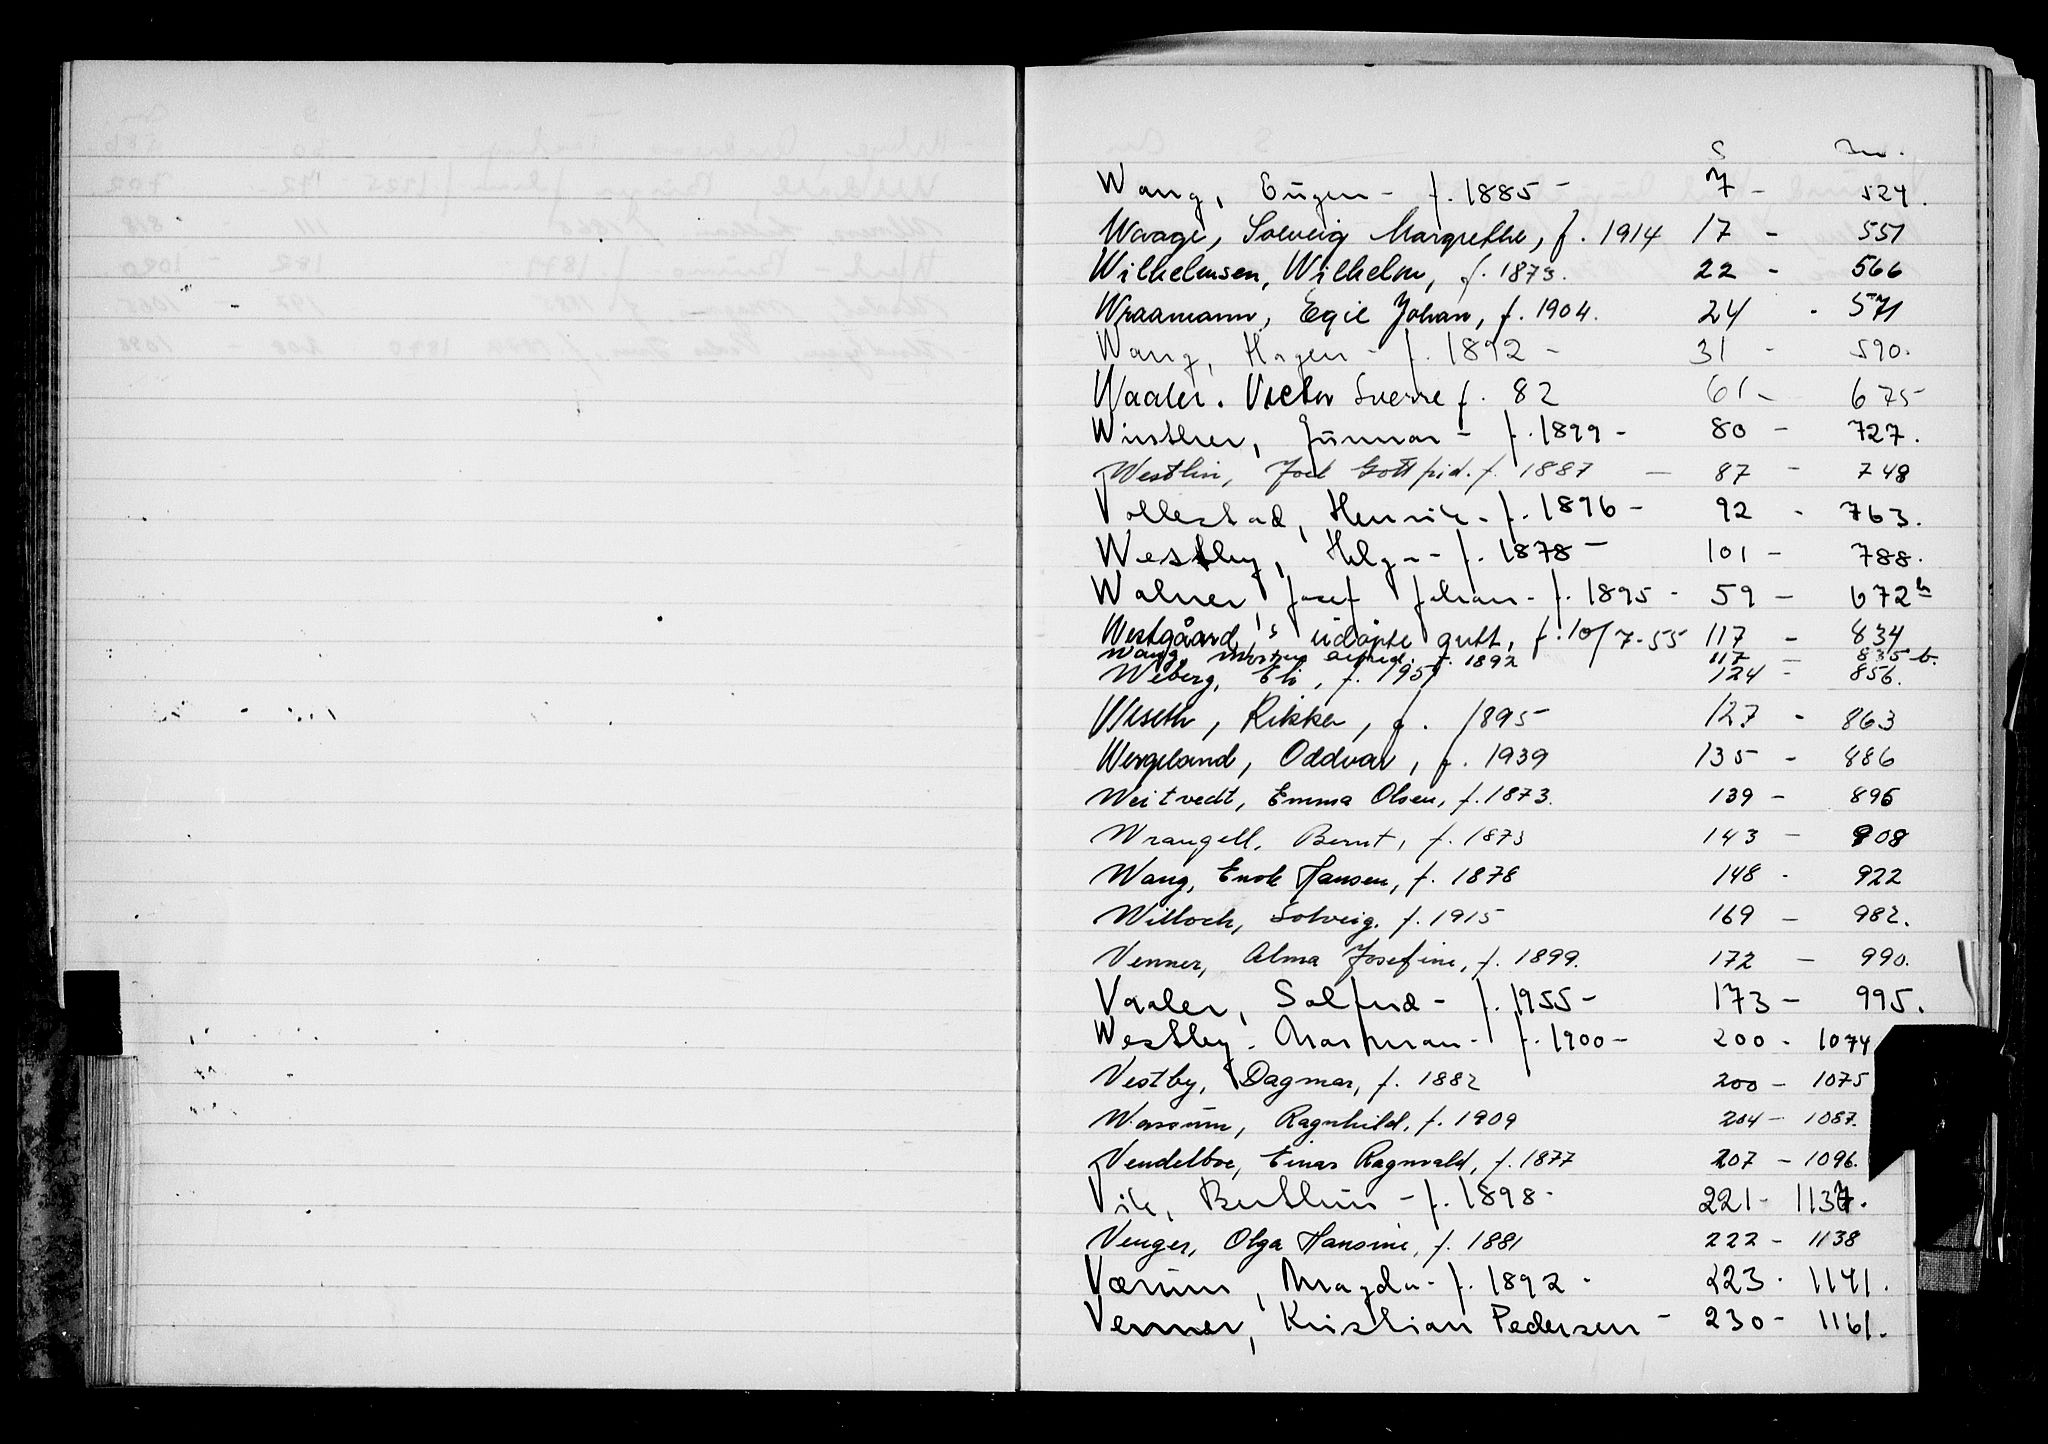 S nr.
Wang, Eugen - f. 1885 - 7 - 524.
Waage, Solveig Margrethe, f. 1914 17 - 551
Wilhelmsen, Wilhelm, f. 1873. 22 - 566
Wraamann, Egil Johan, f. 1904. 24 - 571
Wang, Hagen - f. 1892 - 31 - 590.
Waaler. Victor Sverre f. 82 61 - 675
Winther, Gunnar - f. 1899 - 80 - 727.
Westlin, Joel Gottfrid. f. 1887 - 87 - 748
Vollestad, Henrik - f. 1896 - 92 - 763.
Westby, Helga - f. 1878 - 101 - 788.
Walner, Josef Johan - f. 1895 - 59 - 672 b
Westgåard's udøpte gutt, f. 10/7-55 117 - 834
Wang, Morten Alfred. f. 1892 117 - 835 b.
Weberg, Eli, f. 1951 124 - 856.
Wiseth, Rikke, f. 1895 127 - 863
Wergeland, Oddvar, f. 1939 135 - 886
Weitvedt, Emma Olsen, f. 1873. 139 - 896
Wrangell, Bernt, f. 1873 143 - 908
Wang, Enok Hansen, f. 1878 148 - 922
Willoch, Solveig. f. 1915 169 - 982.
Venner, Alma Josefine, f. 1899. 172 - 990.
Vaaler, Salfrid - f. 1955 - 173 - 995.
Westby. Martman - f. 1900 - 200 - 1074
Vestby, Dagmar, f. 1882 200 - 1075
Wassum, Ragnhild, f. 1909 204 - 1087.
Vendelboe, Einar Ragnvald, f. 1877 207 - 1096.
Vik, Berthins - f. 1898 - 221 - 1137.
Venger, Olga Hansine, f. 1881 222 - 1138
Værum, Magda - f. 1892 - 223 - 1141.
Venner, Kristian Pedersen - 230 - 1161.